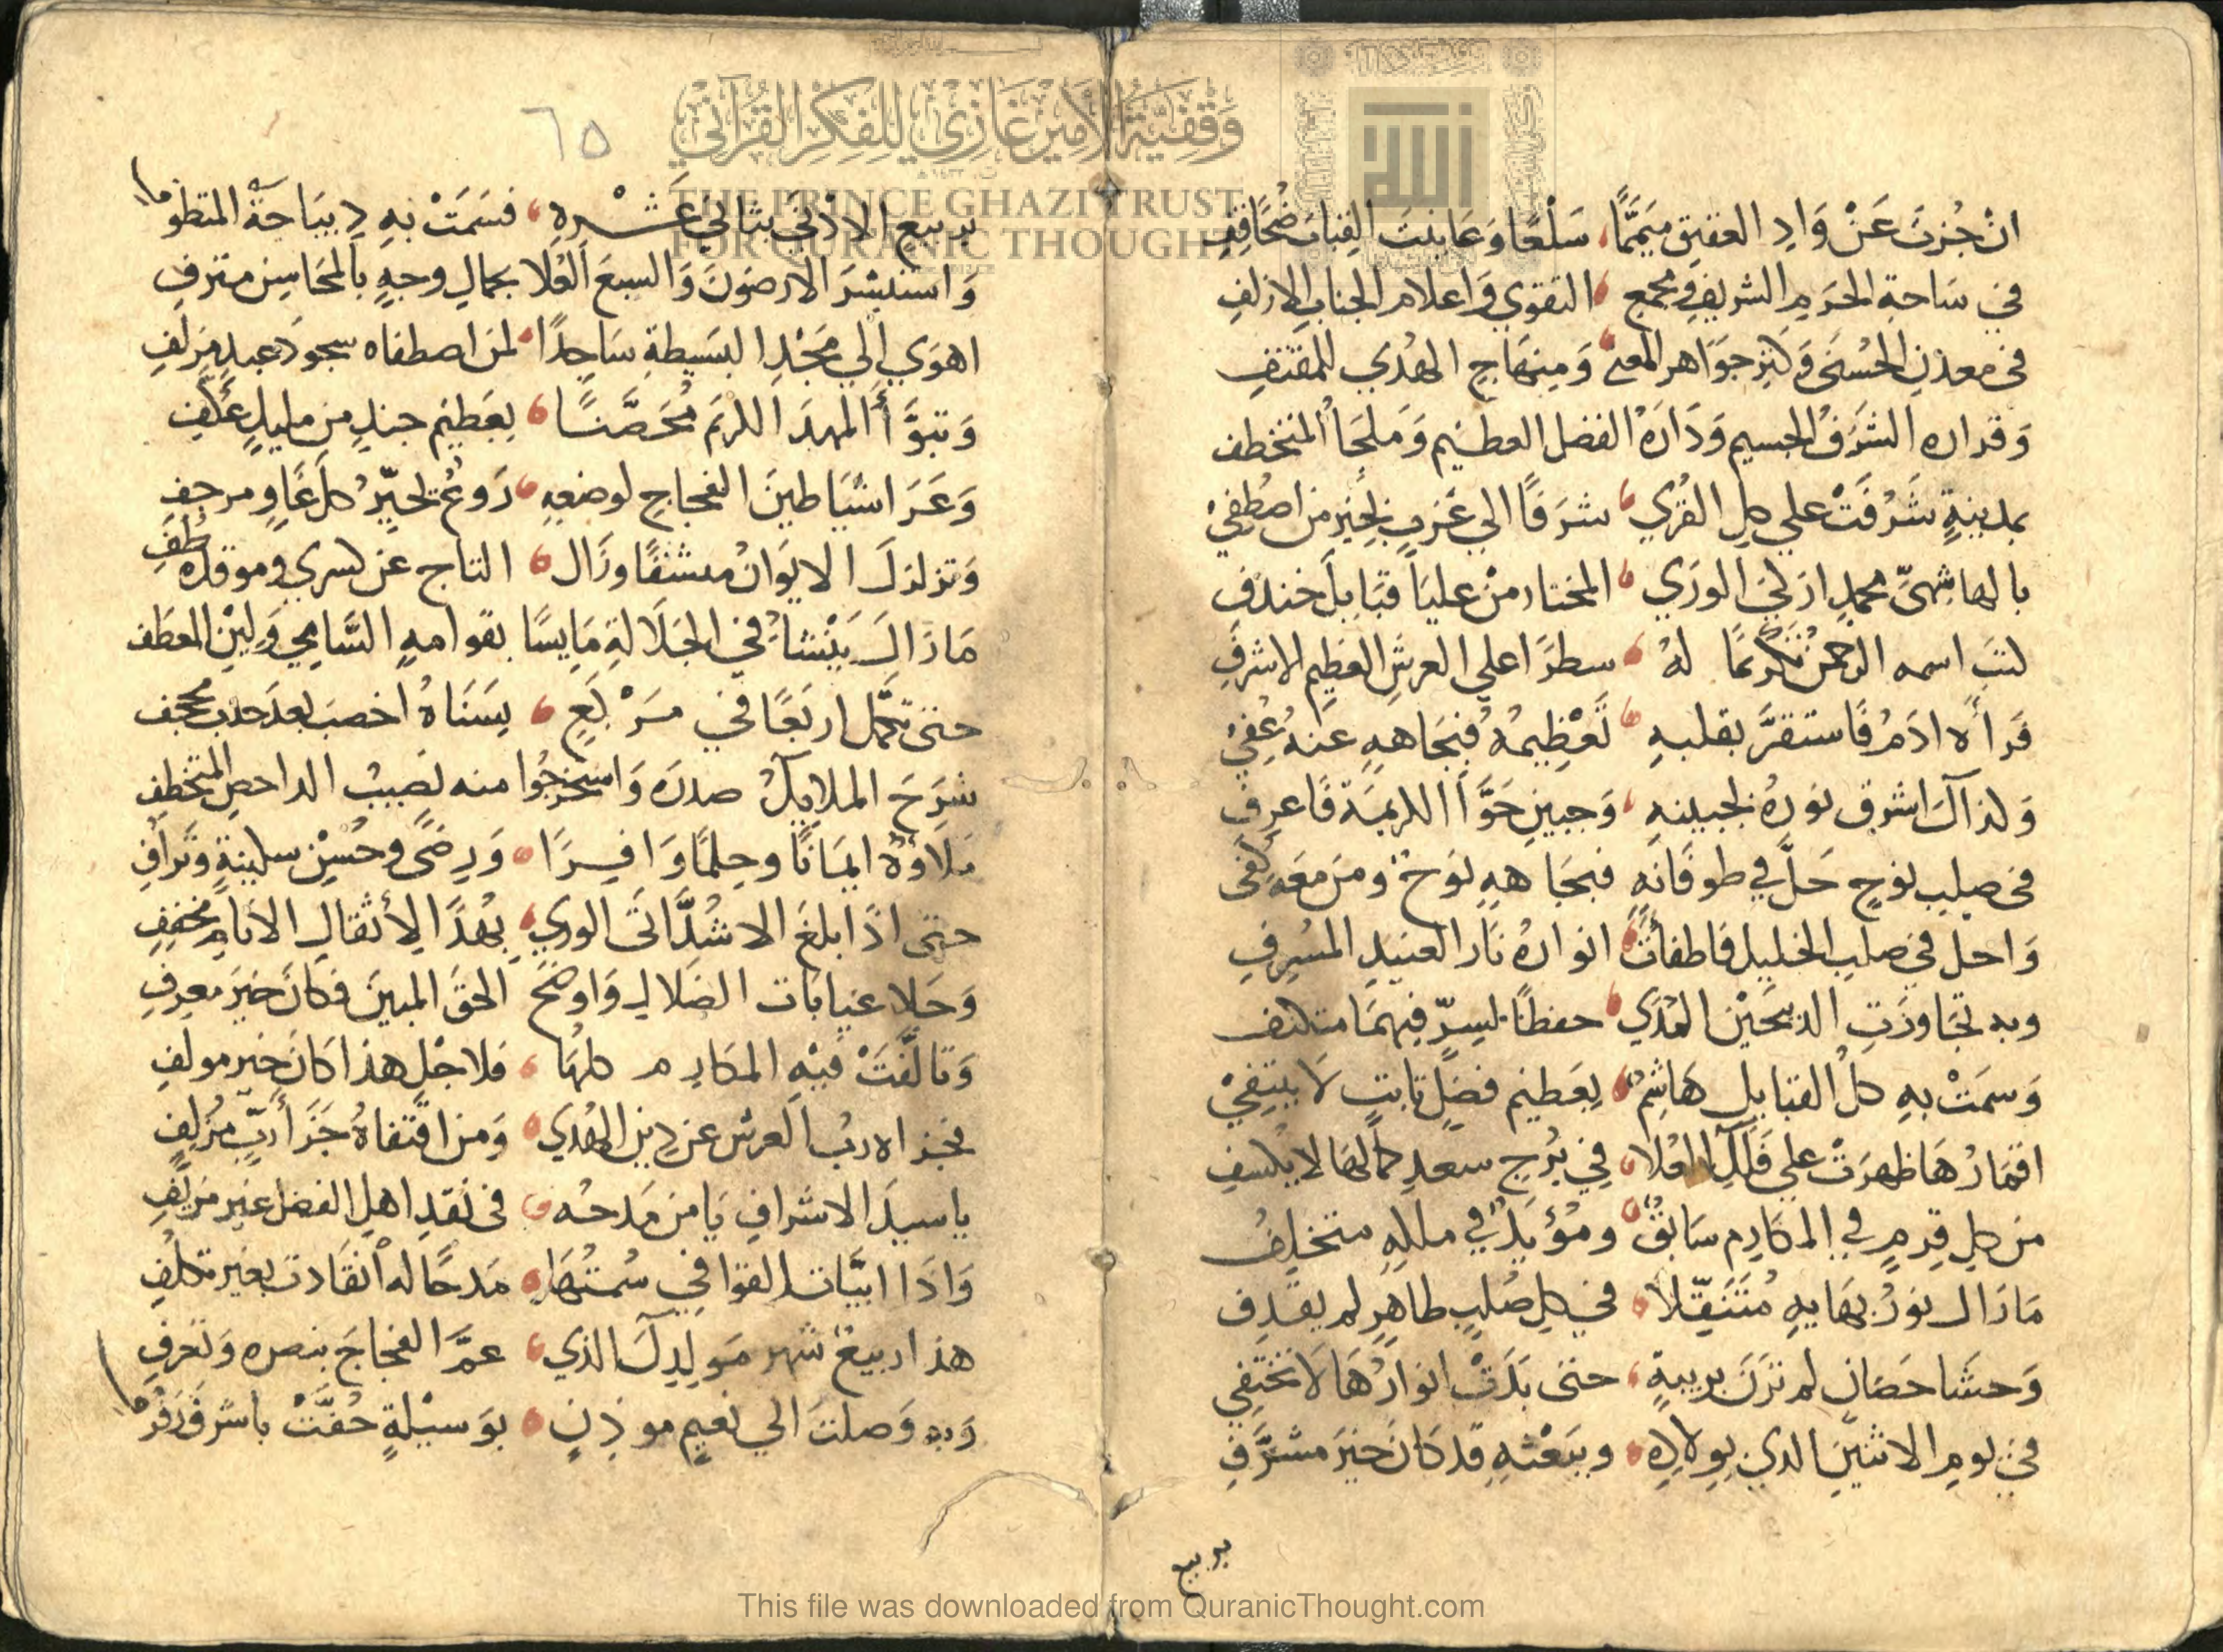 ان جُزتَ عَنْ وَادِ العقيقِ مُيَمِّمًا سَلْعًا وَعَاينتَ القِبابَ ضُحًا قِفِ
في سَاحةِ الحَرَمِ الشريفِ ومجمعِ التقوي وَاعلامِ الجنابِ الازلفِ
في معدنِ الحُسنَى وَكنزِ جوَاهرِ المعنى وَمِنهَاجِ الهُدَي للمقتفِ
وَقراره الشَرَفُ الجسيم وَدَارَةُ الفضل العظيم وَملجَأ المتخطف
بمدينةٍ شَرُفَتْ علي كلِ القرَي شرَفًا الي عَرَبٍ لِخَيرِ من اصْطُفِيْ
بالهاشِميِّ محمدٍ ازكَي الورَي المختار منْ عليَا قبَايلَ خندف
كتبَ اسمه الرحمنُ تكرمًا لهُ سطرًا علي العرشِ العَظيمِ الاشرفِ
فَرأه ادَمُ فاستقرَّ بقلبهِ تَعْظِيمُهُ فَبِجَاههِ عَنهُ عُفِيْ
وَلذاكَ اشرق نورهُ بجبينهِ وَجبينِ حَوَّا الكريمَة فَاعرِف
في صلبِ نوحٍ حَلَّ في طوفَانهِ فبجَاههِ نوح ومَن مَعَه كفى
وَاحل في صلبِ الخليل فَاطفأتْ انوارهُ نارَ العنيدِ المسْرِفِ
وبه تجَاوزَتِ الذبيحَيْنِ المُدَي حفظًا لِسِرٍّ فيهمَا متكنف
وَسمَتْ بهِ كلَ القبايلِ هَاشمٌ بعَظيم فضلٍ ثابتٍ لَا ينتفيْ
اقمَارُهَا ظهرَتْ علي فَلَكِ العُلا في بُرجِ سعدٍ كمالهَا لا يُكسفِ
من كلِ قرمٍ في المكَارِم سَابقٌ ومؤيدٌ في ملكهِ متخلفُ
مَا زَال نورُ بهَايهِ مُتَنقّلا في كلِ صُلبٍ طاهرٍ لم يقذف
وَحشَا حَصَانٍ لم تزَنَّ بريبةٍ حتى بَدَتْ انوَارُهَا لَا تختفي
في يومِ الاثنينِ الذي بولادِهِ وببَعْثهِ قد كَانَ خيرَ مشرَّفِ
بربيع
٦٥
بربيعِ الادْنَي بثاني عَشْرهِ فسَمَتْ بهِ ديبَاجَةُ المتطوف
وَاستبشرَ الارضونَ وَالسبعَ العُلا بجمالِ وجهٍ بالمحَاسِنِ مترفِ
اهوَي الي مَجْدِ البسَيطةِ سَاجدًا لمن اصطفاه سجودَ عبدٍ مزلفِ
وَتبوَّأَ المهدَ الكريمَ مُحَصَّنًا بعَظيم جندٍ من مليكٍ عُكَّفِ
وَعَرَا شيَاطينَ الفجاجِ لوضعهِ رَوعٌ تحيِّرُ كلَ غاوٍ مرجفِ
وَتزلزلَ الايوَانُ منشقًا وزَال التاج عن كسري وموقده طُفِ
مَا زَالَ يَنْشأ في الجَلَالةِ مَايسًا بقوامهِ السَّامِي وَلِيْنِ المعطَف
حتى تحمَّل اربعًا في مَرْبَعٍ بِسَنَاهُ اخصبَ بعدَ جدبٍ مجحف
شرَحَ الملايكُ صدرَه وَاستخرجُوا منه نصيبُ الداحصِ المتخطفِ
مَلاوْهُ ايمَانًا وحِلمًا وَافرًا وَرِضًى وحُسْنِ سكينةٍ وَتَرَافِ
حتى اذَا بلغَ الاشُدَّ اتَى الوري بهُدًا لِأثقالِ الانامِ مخففِ
وَجَلا غيابات الضلالِ وَاوضَحَ الحقَ المبينَ فكانَ خيرَ معرِفِ
وَتالَّفَتْ فيْهِ المكَارِم كلهَا فلاجْلِ هذا كانَ خيرَ مولفِ
فجزاه ربُ العرش عن دِينِ الهُدَي وَمن اقتفاهُ جَزَأ ربٍّ مُزلِفِ
ياسيدَ الاشرافِ يَا من مَدحُه في نَقدِ اهلِ الفضلِ غير مزيَّفِ
وَاذَا ابيَّات القوَافي سُمتُهَا مَدحًا له انقَادت بغير تكلفِ
هذا ربيعٌ شهر مَولِدِكَ الذي عمَّ الفجاجَ بنصره وَتعرفِ
وَبه وَصلتَ الي نعيمٍ موذنٍ بوَسيْلةٍ حُفَّتْ باشرفَ
وقفية الأمير غازي للفكر القرآني
THE PRINCE GHAZI TRUST
FOR QURANIC THOUGHT
This file was downloaded from QuranicThought.com